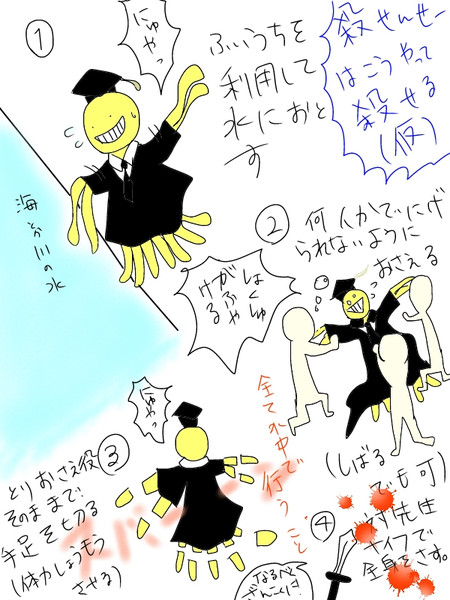 殺せんせー
はこうやって
殺せる
(仮)
①
にゅやっ
ふいうちを
利用して
水におと
す
海とか川の水
②
何人かでにげ
られないように
おさえる
はくじゅ
がふゃ
ける
(しばる
でも可)
全て水中で
行うこと
③
にゅやっ
とりおさえ役
そのままで!
手足を切る
(体力しょうもう
させる)
④
対先生
ナイフで
全身をさす。
なるべく
ざんこくに